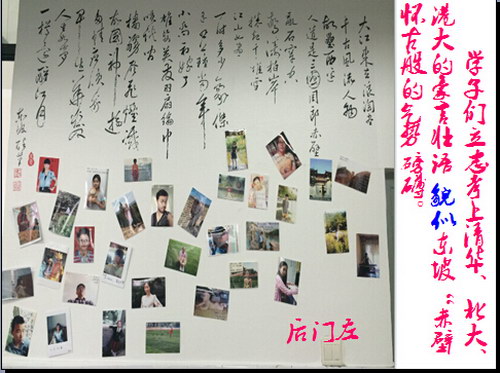 学子们立志考上清华、北大、
港大的豪言壮语貌似东坡“赤壁
怀古般的气势磅礴。
大江东去浪淘尽
千古风流人物
故垒西边
人道是三国周郎赤壁
乱石穿空
惊涛拍岸
卷起千堆雪
江山如画
一时多少豪杰
遥想公瑾当年
小乔初嫁了
雄姿英发羽扇纶巾
谈笑间
樯橹灰飞烟灭
故国神游
多情应笑我
早生华发
人生如梦
一樽还酹江月
东坡
后门左